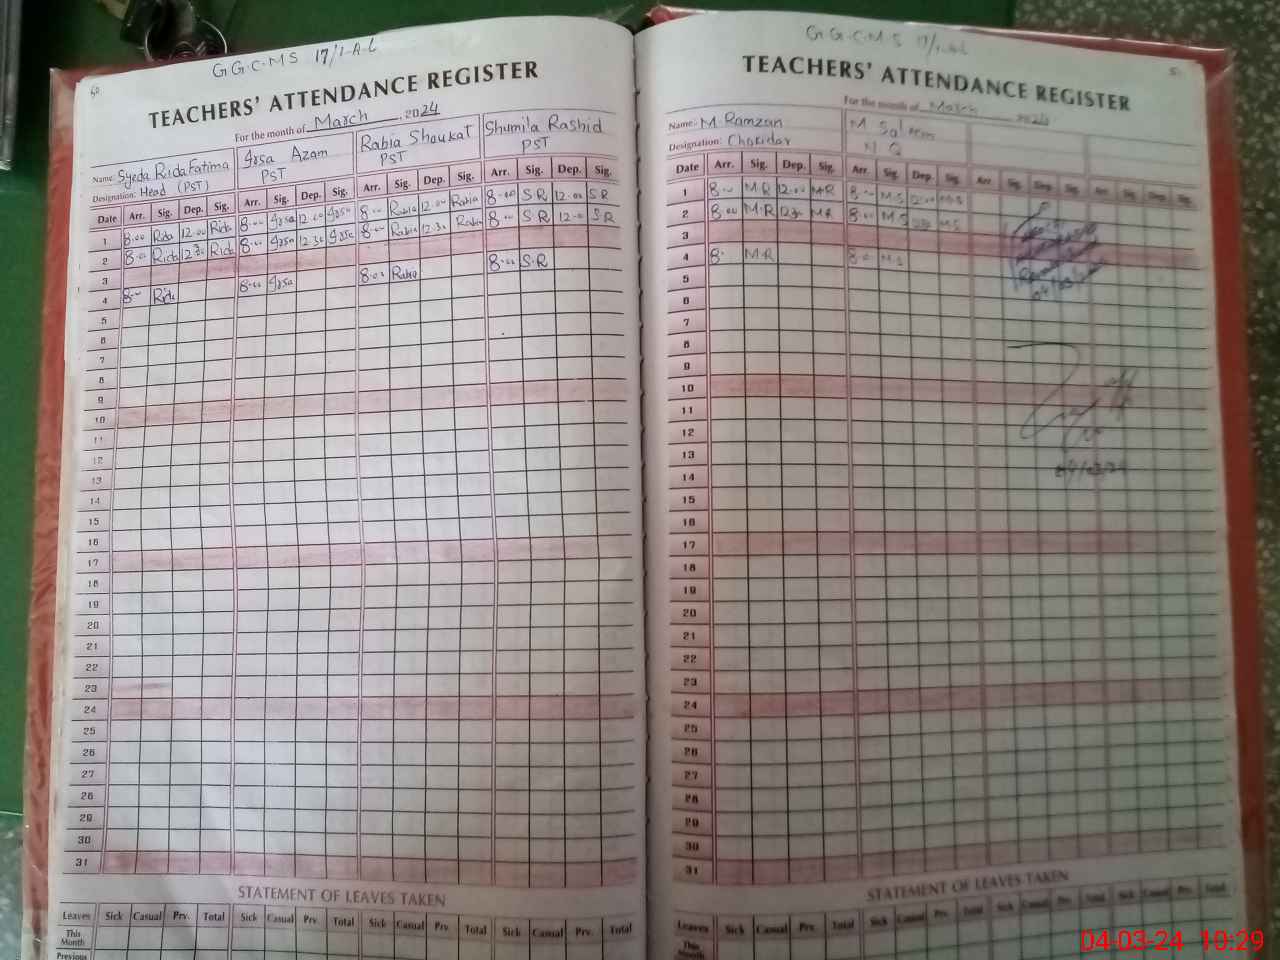 50
G G.C.M S 17/1-A-L
TEACHERS' ATTENDANCE REGISTER
For the month of March, 2024
Name: Syeda Rida Fatima Irsa Azam Rabia Shoukat Shumila Rashid
Designation: Head (PST) PST PST PST
Date Arr. Sig. Dep. Sig. Arr. Sig. Dep. Sig. Arr. Sig. Dep. Sig. Arr. Sig. Dep. Sig.
1 8:00 Rida 12:00 Rida 8:00 Irsa 12:00 Irsa 8:00 Rabia 12:00 Rabia 8:00 S R 12:00 S R
2 8:00 Rida 12:30 Rida 8:00 Irsa 12:30 Irsa 8:00 Rabia 12:30 Rabia 8:00 S R S R
3
4 8:00 Rida 8:00 Irsa 8:00 Rabia 8:00 S.R
5
6
7
8
9
10
11
12
13
14
15
16
17
18
19
20
21
22
23
24
25
26
27
28
29
30
31
STATEMENT OF LEAVES TAKEN
Leaves Sick Casual Prv. Total Sick Casual Prv. Total Sick Casual Prv. Total Sick Casual Prv. Total
This Month
Previous
G G.C.M S 17/1-A-L
TEACHERS' ATTENDANCE REGISTER
For the month of March 2024
Name: M Ramzan M Saleem
Designation: Chokidar N Q
Date Arr. Sig. Dep. Sig. Arr. Sig. Dep. Sig. Arr Sig. Dep. Sig. Arr. Sig. Dep. Sig.
1 8:00 M R 12:00 M R 8:00 M S 12:00 M S
2 8:00 M R 12:30 M R 8:00 M S M S
3
4 8: M R 8:00 M S
5
6
7
8
9
10
11
12
13
14
15
16
17
18
19
20
21
22
23
24
25
26
27
28
29
30
31
04/03/24
STATEMENT OF LEAVES TAKEN
Leaves Sick Casual Prv. Total Sick Casual Prv. Total Sick Casual Prv. Total Sick Casual Prv. Total
This
04-03-24 10:29